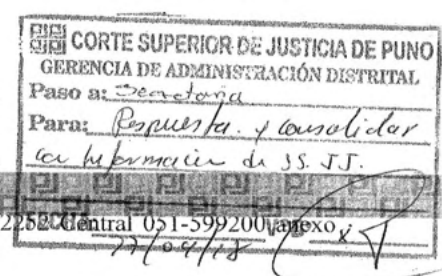 CORTE SUPERIOR DE JUSTICIA DE PUNO
GERENCIA DE ADMINISTRACIÓN DISTRITAL
Paso a: Secretaria
Para: Respuesta. y consolidar
con información de SS. JJ.
2252 Central 051-599200 anexo